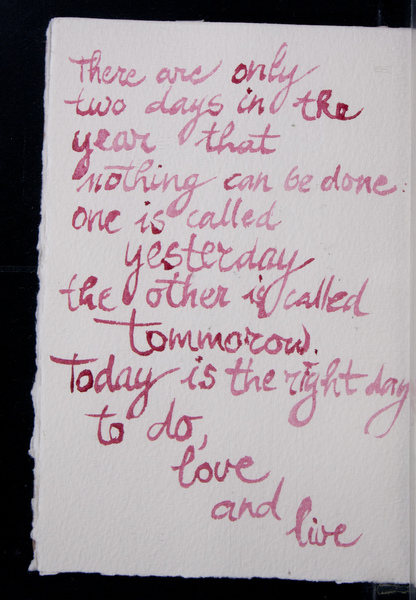 There are only
two days in the
year that
nothing can be done.
one is called
yesterday
the other is called
tommorow.
Today is the right day
to do,
love
and
live